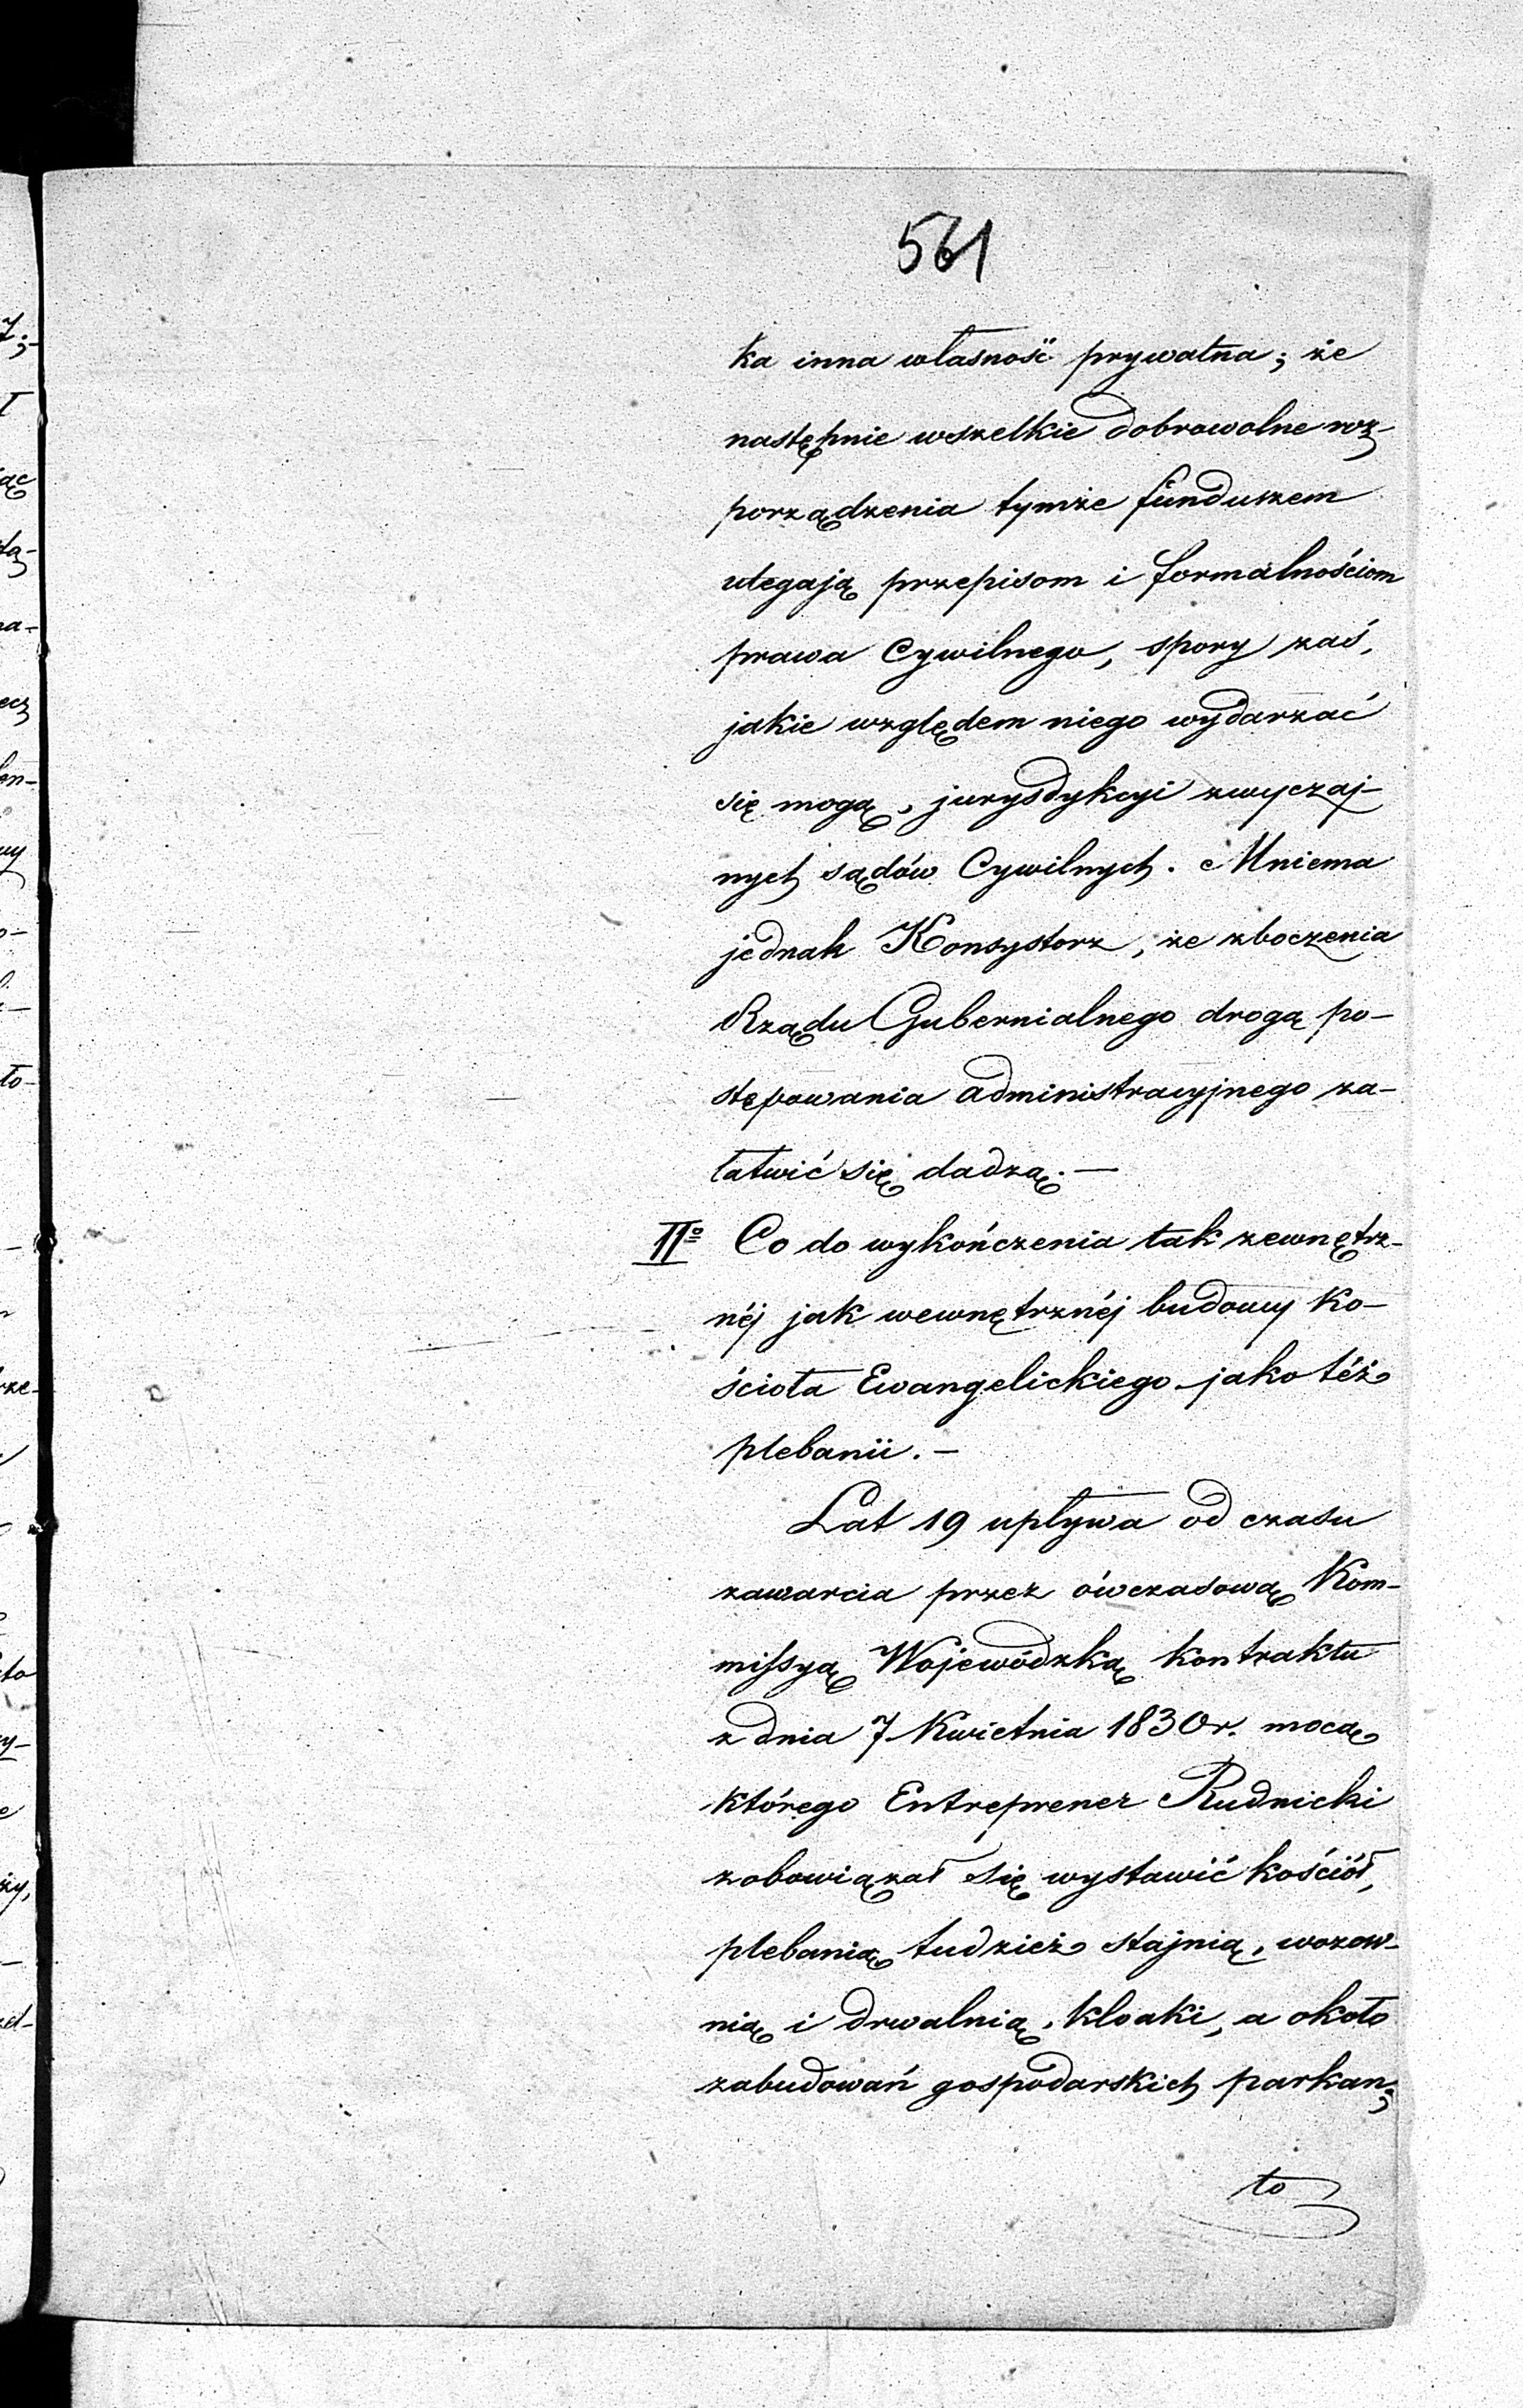 561
ka inna własność prywatna; że
następnie wszelkie dobrowolne roz-
porządzenia tymże funduszem
ulegają przepisom i formalnościom
prawa Cywilnego, spory zaś,
jakie względem niego wydarzać
się mogą, jurysdykcyi zwyczaj-
nych sądów Cywilnych. Mniema
jednak Konsystorz, że zboczenia
Rządu Gubernialnego drogą po-
stępowania administracyjnego za-
łatwić się dadzą. —
IIº Co do wykończenia tak zewnętrz-
néj jak wewnętrznéj budowy ko-
ścioła Ewangelickiego jako téż
plebanii. —
Lat 19 upływa od czasu
zawarcia przez ówczasową Kom-
missyą Wojewódzką kontraktu
z dnia 7 Kwietnia 1830 r. mocą
którego Entreprener Rudnicki
zobowiązał się wystawić kościół,
plebanią, tudzież stajnią, wozow-
nią i drwalnią, kloaki, a około
zabudowań gospodarskich parkan;
to